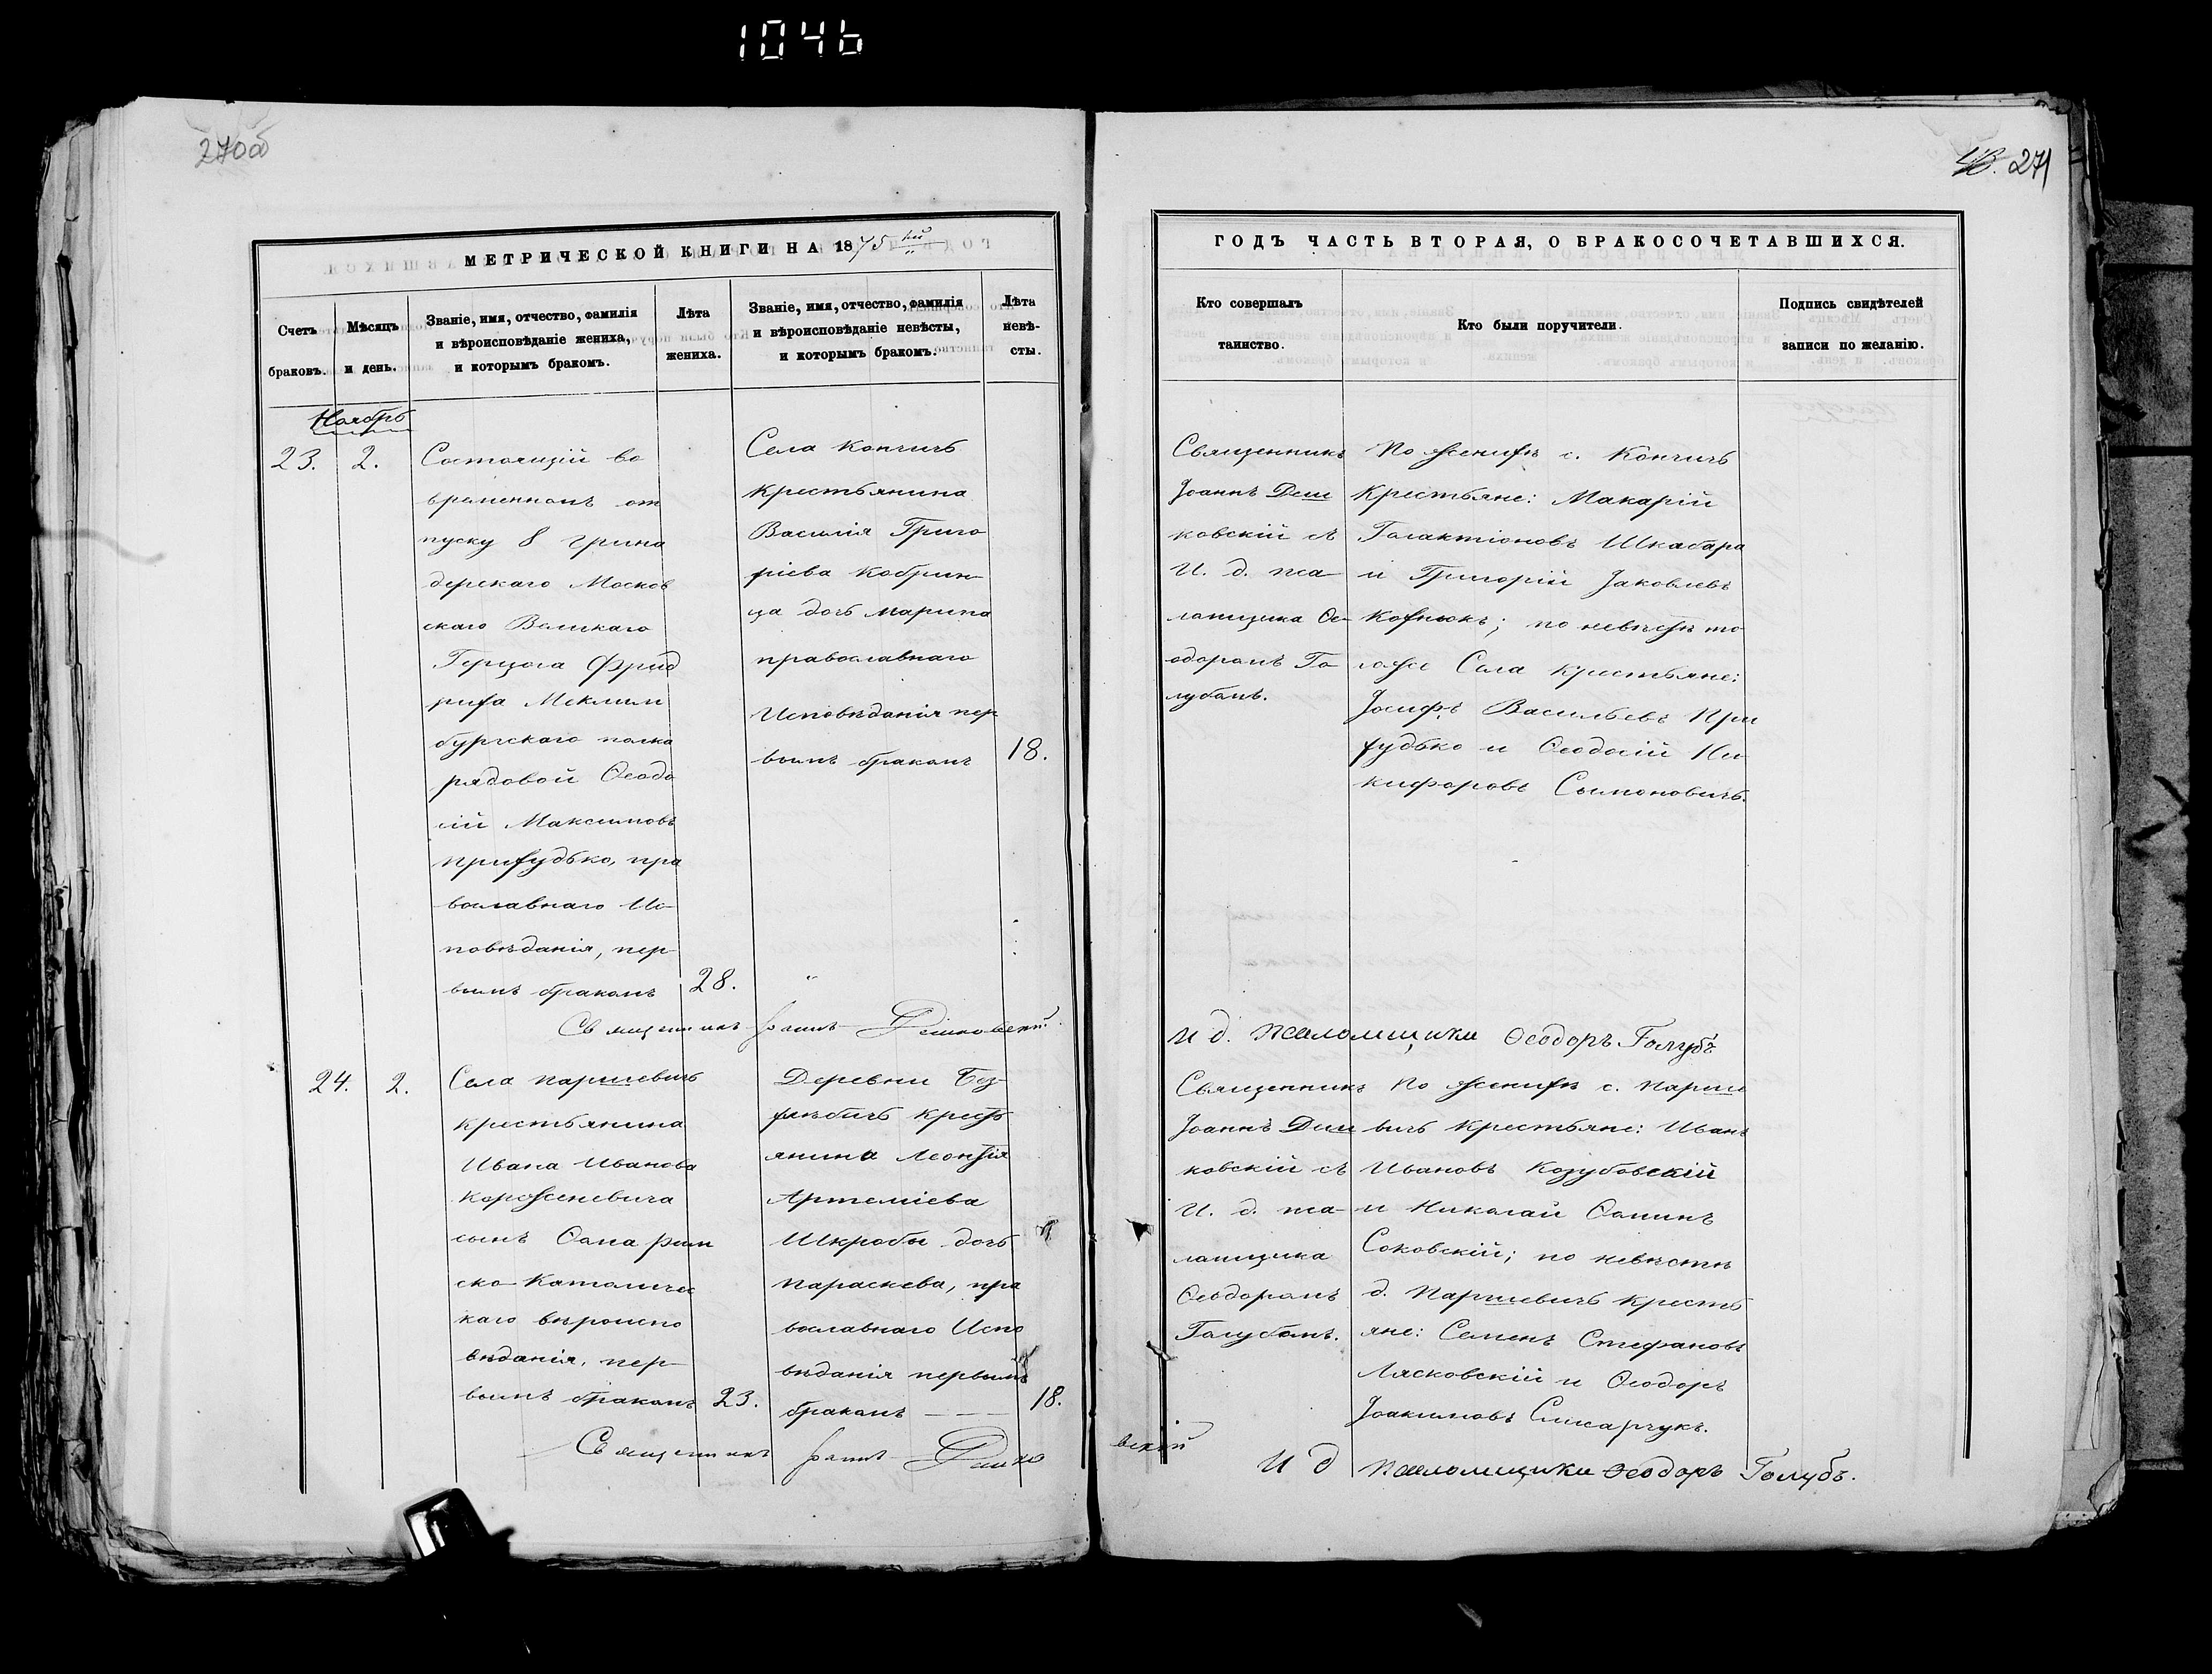 1046
270об
271
МЕТРИЧЕСКОЙ КНИГИ НА 1875ый
Счетъ браковъ.
Мѣсяцъ и день.
Званіе, имя, отчество, фамилія
и вѣроисповѣданіе жениха,
и которымъ бракомъ.
Лѣта жениха.
Званіе, имя, отчество, фамилія
и вѣроисповѣданіе невѣсты,
и которымъ бракомъ.
Лѣта невѣ-
сты.
Ноябрь
23.
2.
Состоящій во
временномъ от
пуску 8 Грена
дерскаго Москов
скаго Великаго
Герцога Фрид
риха Меклин
бургскаго полка
рядовой Ѳеодо
сій Максимовъ
Приходько, пра
вославнаго Ис-
повѣданія, пер-
вымъ бракомъ
28.
Села Кончичъ
Крестьянина
Василія Григо
ріева Кобрин-
ца дочь Марина
православнаго
Исповѣданія пер
вымъ бракомъ
18.
Священникъ Іоаннъ Дешковскій
24.
2.
Села Паршевичъ
Крестьянина
Ивана Иванова
Корженевича
сынъ Ѳома Рим
ско-Католичес
каго вѣроиспо
вѣданія, пер-
вымъ бракомъ
23.
Деревни Без-
хлѣбичъ Крест
янина Леонтія
Артеміева
Шкробы дочь
Параскева, пра
вославнаго Испо
вѣданія первымъ
бракомъ
18.
Священникъ Іоаннъ Дешко
вскій
ГОДЪ ЧАСТЬ ВТОРАЯ, О БРАКОСОЧЕТАВШИХСЯ.
Кто совершалъ
таинство.
Кто были поручители.
Подпись свидѣтелей
записи по желанію.
Священникъ
Іоаннъ Деш
ковскій съ
И. д. пса-
ломщика Ѳе-
одоромъ Го
лубомъ.
По женихѣ с. Кончичъ
Крестьяне: Макарій
Галактіоновъ Шкабара
и Григорій Іаковлевъ
Кохнюкъ; по невѣстѣ то
гоже Села Крестьяне:
Іосифъ Васильевъ При
ходько и Ѳеодосій Ни-
кифоровъ Сымоновичъ.
И д. Псаломщика Ѳеодоръ Голубъ
Священникъ
Іоаннъ Деш
ковскій съ
И. д. пса-
ломщика
Ѳеодоромъ
Голубомъ.
По женихѣ с. Парше
вичъ Крестьяне: Иванъ
Ивановъ Козубовскій
и Николай Ѳоминъ
Соковскій; по невѣстѣ
д. Паршевичъ Кресть
яне: Семенъ Стефановъ
Лясковскій и Ѳеодоръ
Іоакимовъ Слисарчукъ.
И д Псаломщика Ѳеодоръ Голубъ.